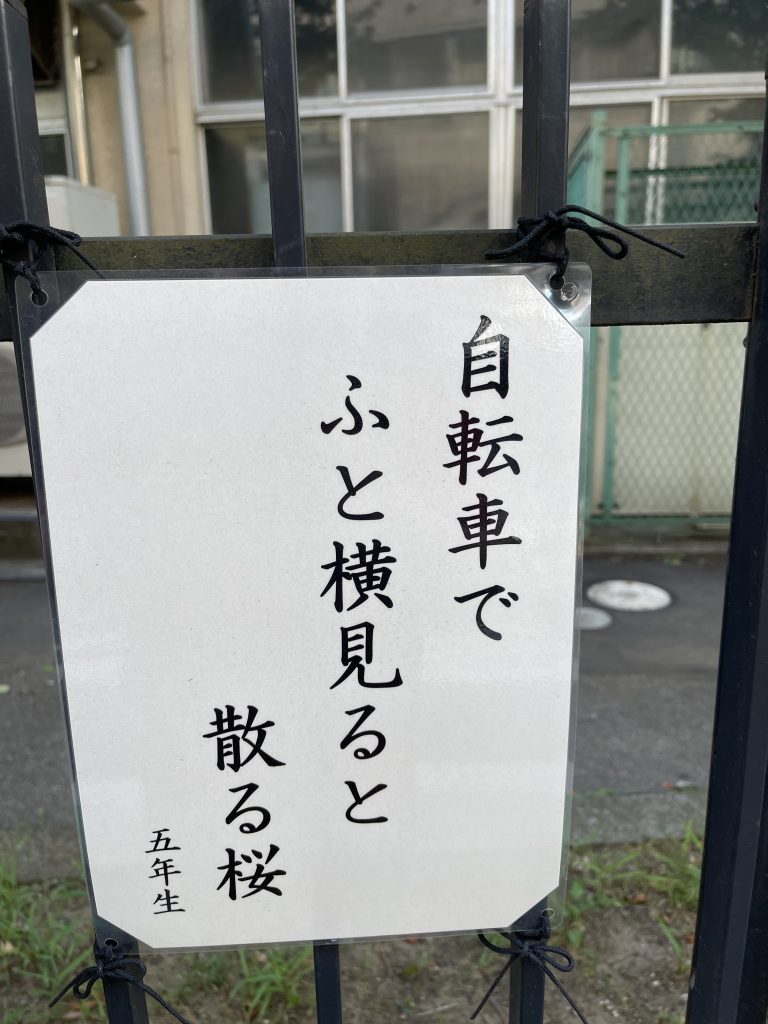 自転車で
ふと横見ると
散る桜
五年生